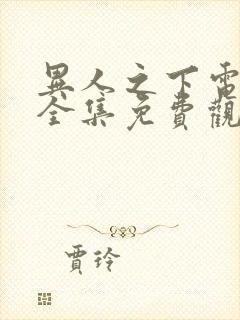 異人之下電
全集免費觀
賈玲